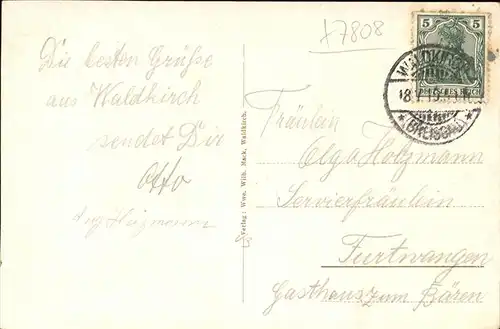 +7808
5
5
DEUTSCHES REICH
WALDKIRCH
* (BREISGAU) *
Die besten Grüße
aus Waldkirch
sendet Dir
Otto
Verlag: Wwe. Wilh. Mack, Waldkirch.
Fräulein
Olga Holzmann
Servierfräulein
Furtwangen
Gasthaus zum Bären